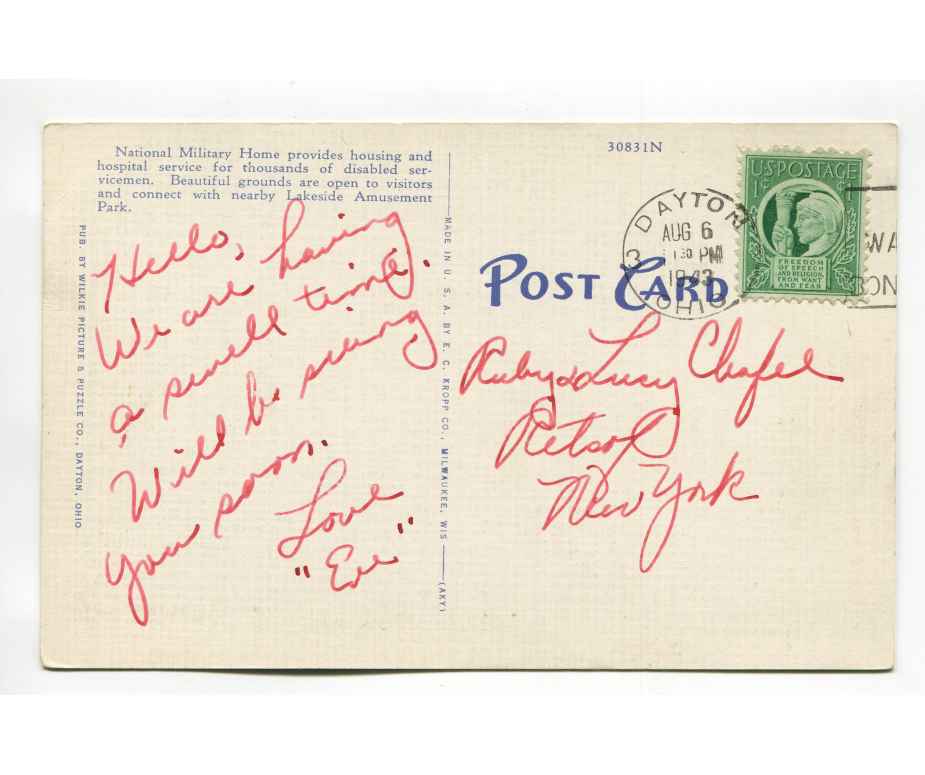 National Military Home provides housing and
hospital service for thousands of disabled ser-
vicemen. Beautiful grounds are open to visitors
and connect with nearby Lakeside Amusement
Park.
Hello,
We are having
a swell time.
Will be seeing
you soon.
Love
"Eve"
PUB. BY WILKIE PICTURE & PUZZLE CO., DAYTON, OHIO
MADE IN U. S. A. BY E. C. KROPP CO., MILWAUKEE, WIS (AKY)
30831N
POST CARD
DAYTON
AUG 6
PM
1943
OHIO
3
U.S. POSTAGE
1¢ ¢1
FREEDOM
OF SPEECH
AND RELIGION,
FROM WANT
AND FEAR
WA
ON
Ruby & Lucy Chafel
Retsof
New York